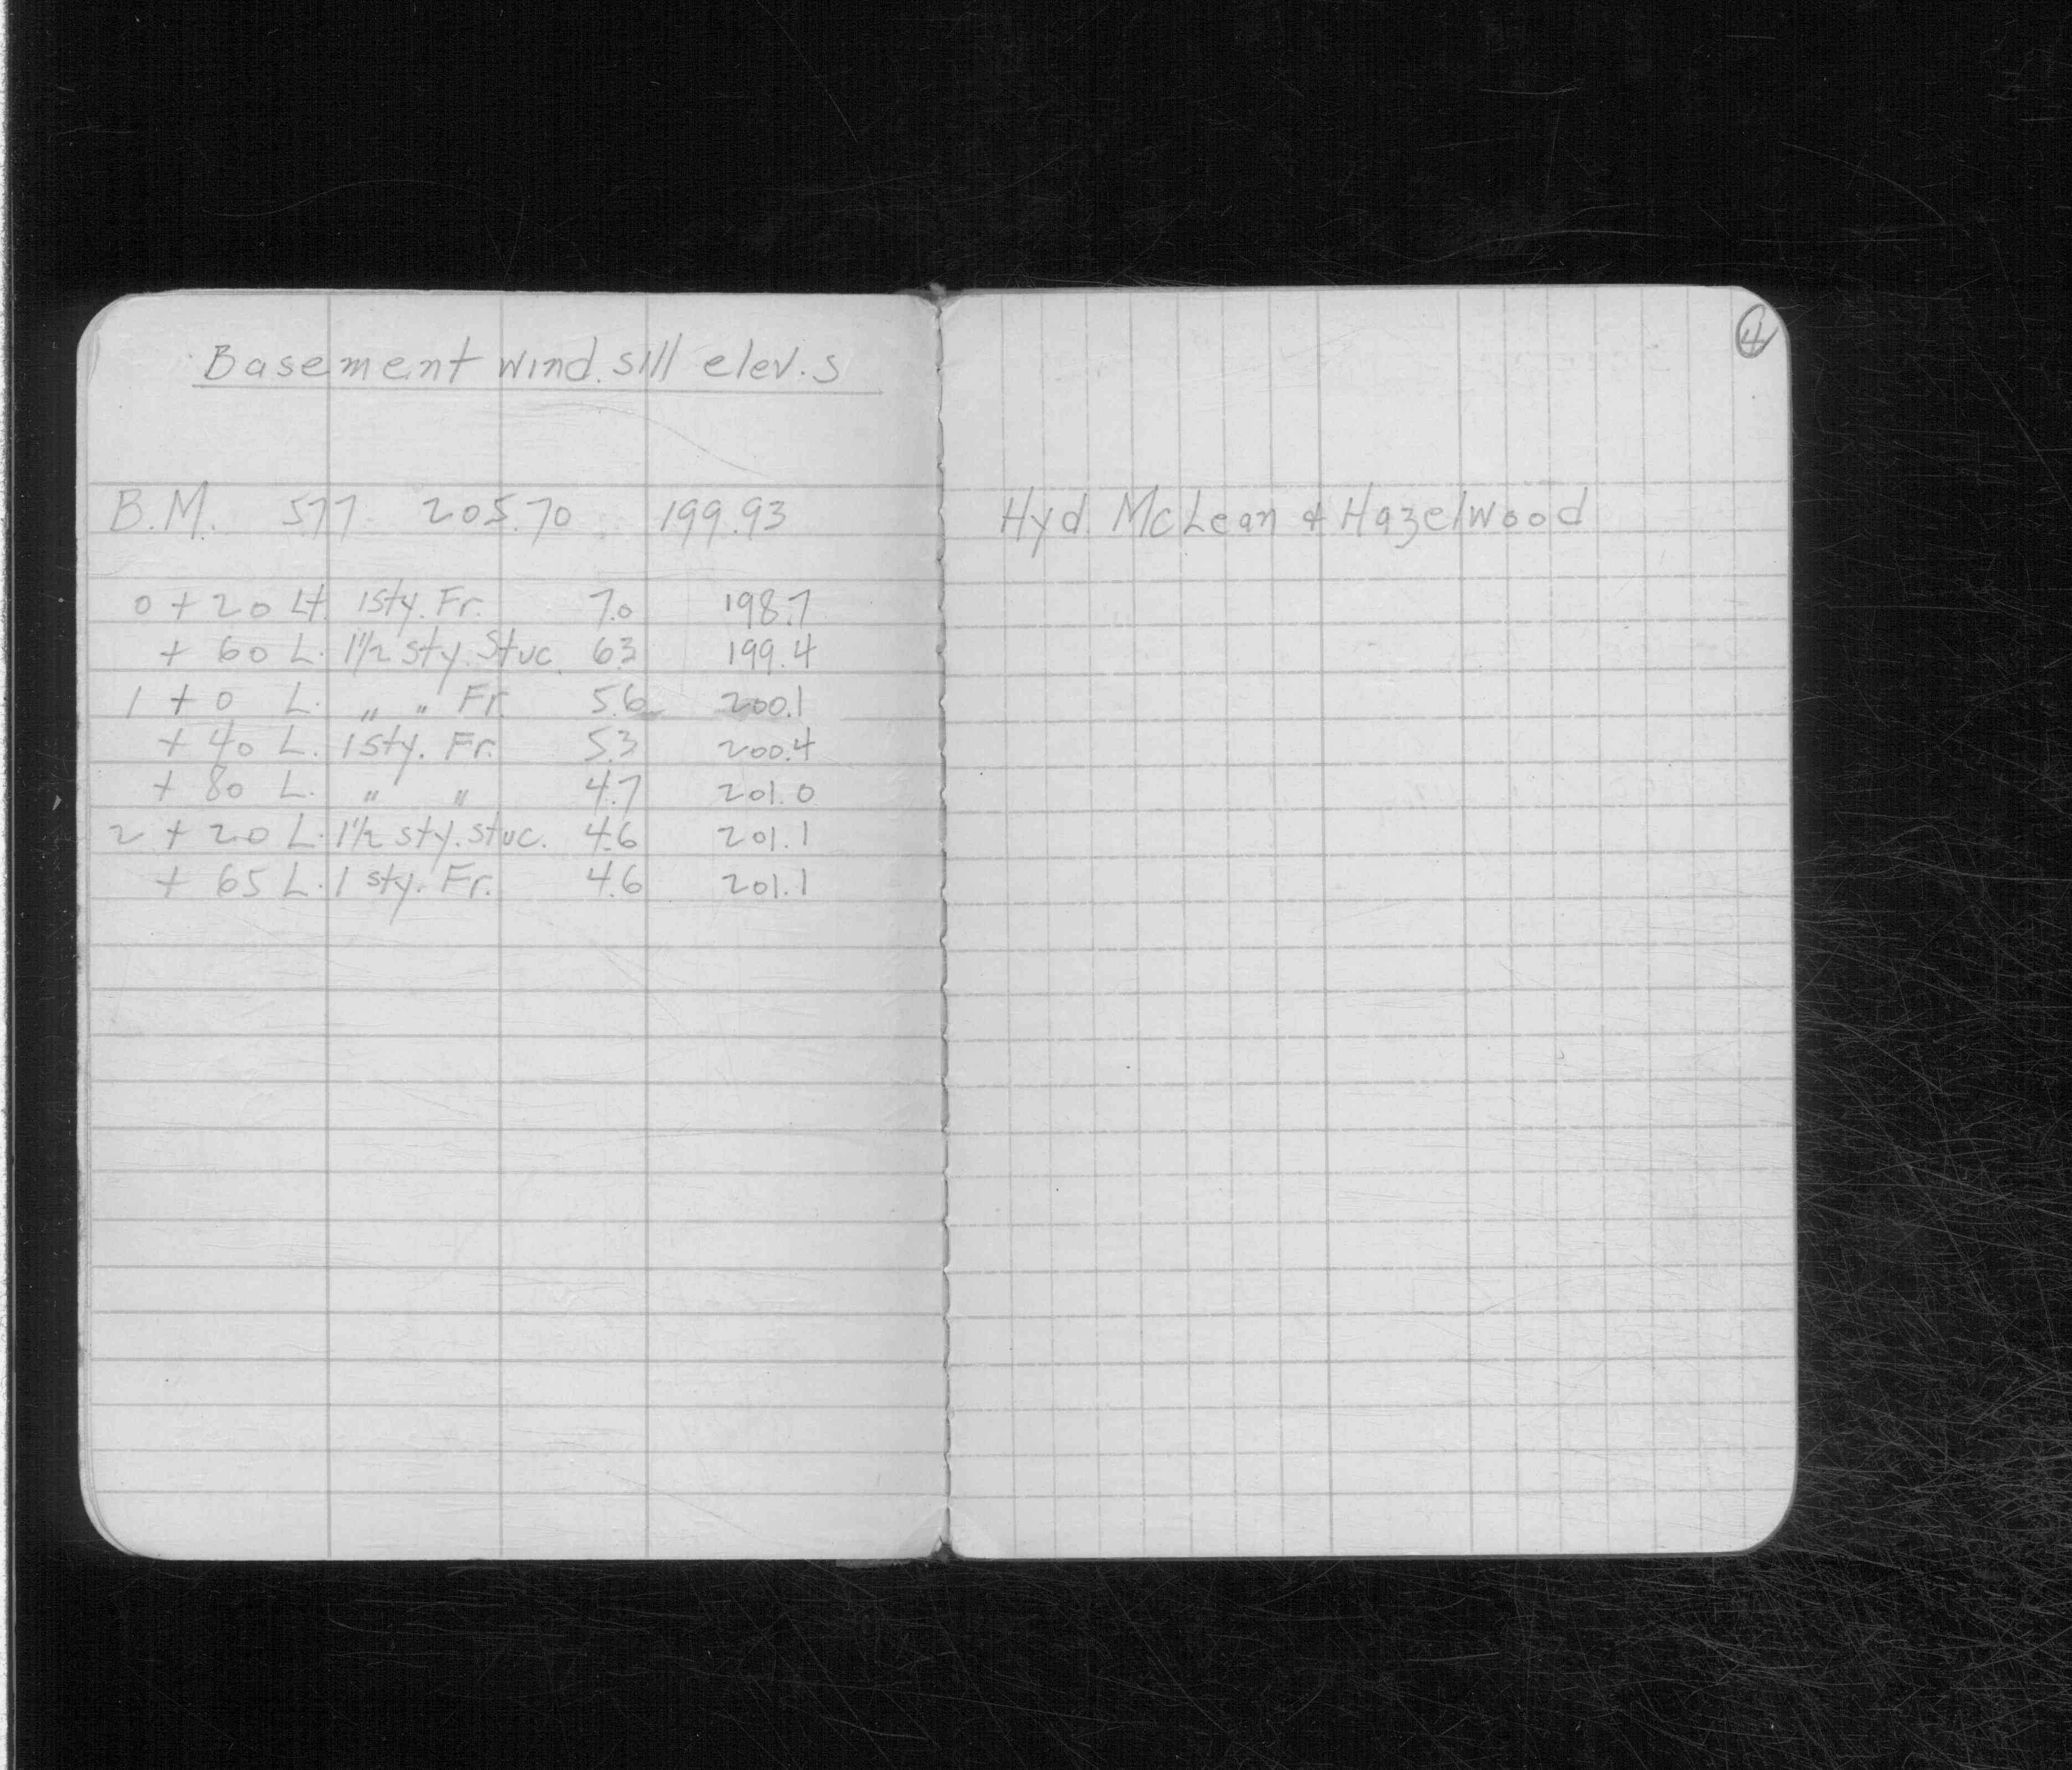 Basement wind. sill elev.s
B.M. 5.77 205.70 199.93
0 + 20 Lt. 1 sty. Fr. 7.0 198.7
+ 60 L. 1 1/2 sty. Stuc. 6.3 199.4
1 + 0 L. " " Fr. 5.6 200.1
+ 40 L. 1 sty. Fr. 5.3 200.4
+ 80 L. " " 4.7 201.0
2 + 20 L. 1 1/2 sty. stuc. 4.6 201.1
+ 65 L. 1 sty. Fr. 4.6 201.1
4
Hyd. McLean & Hazelwood